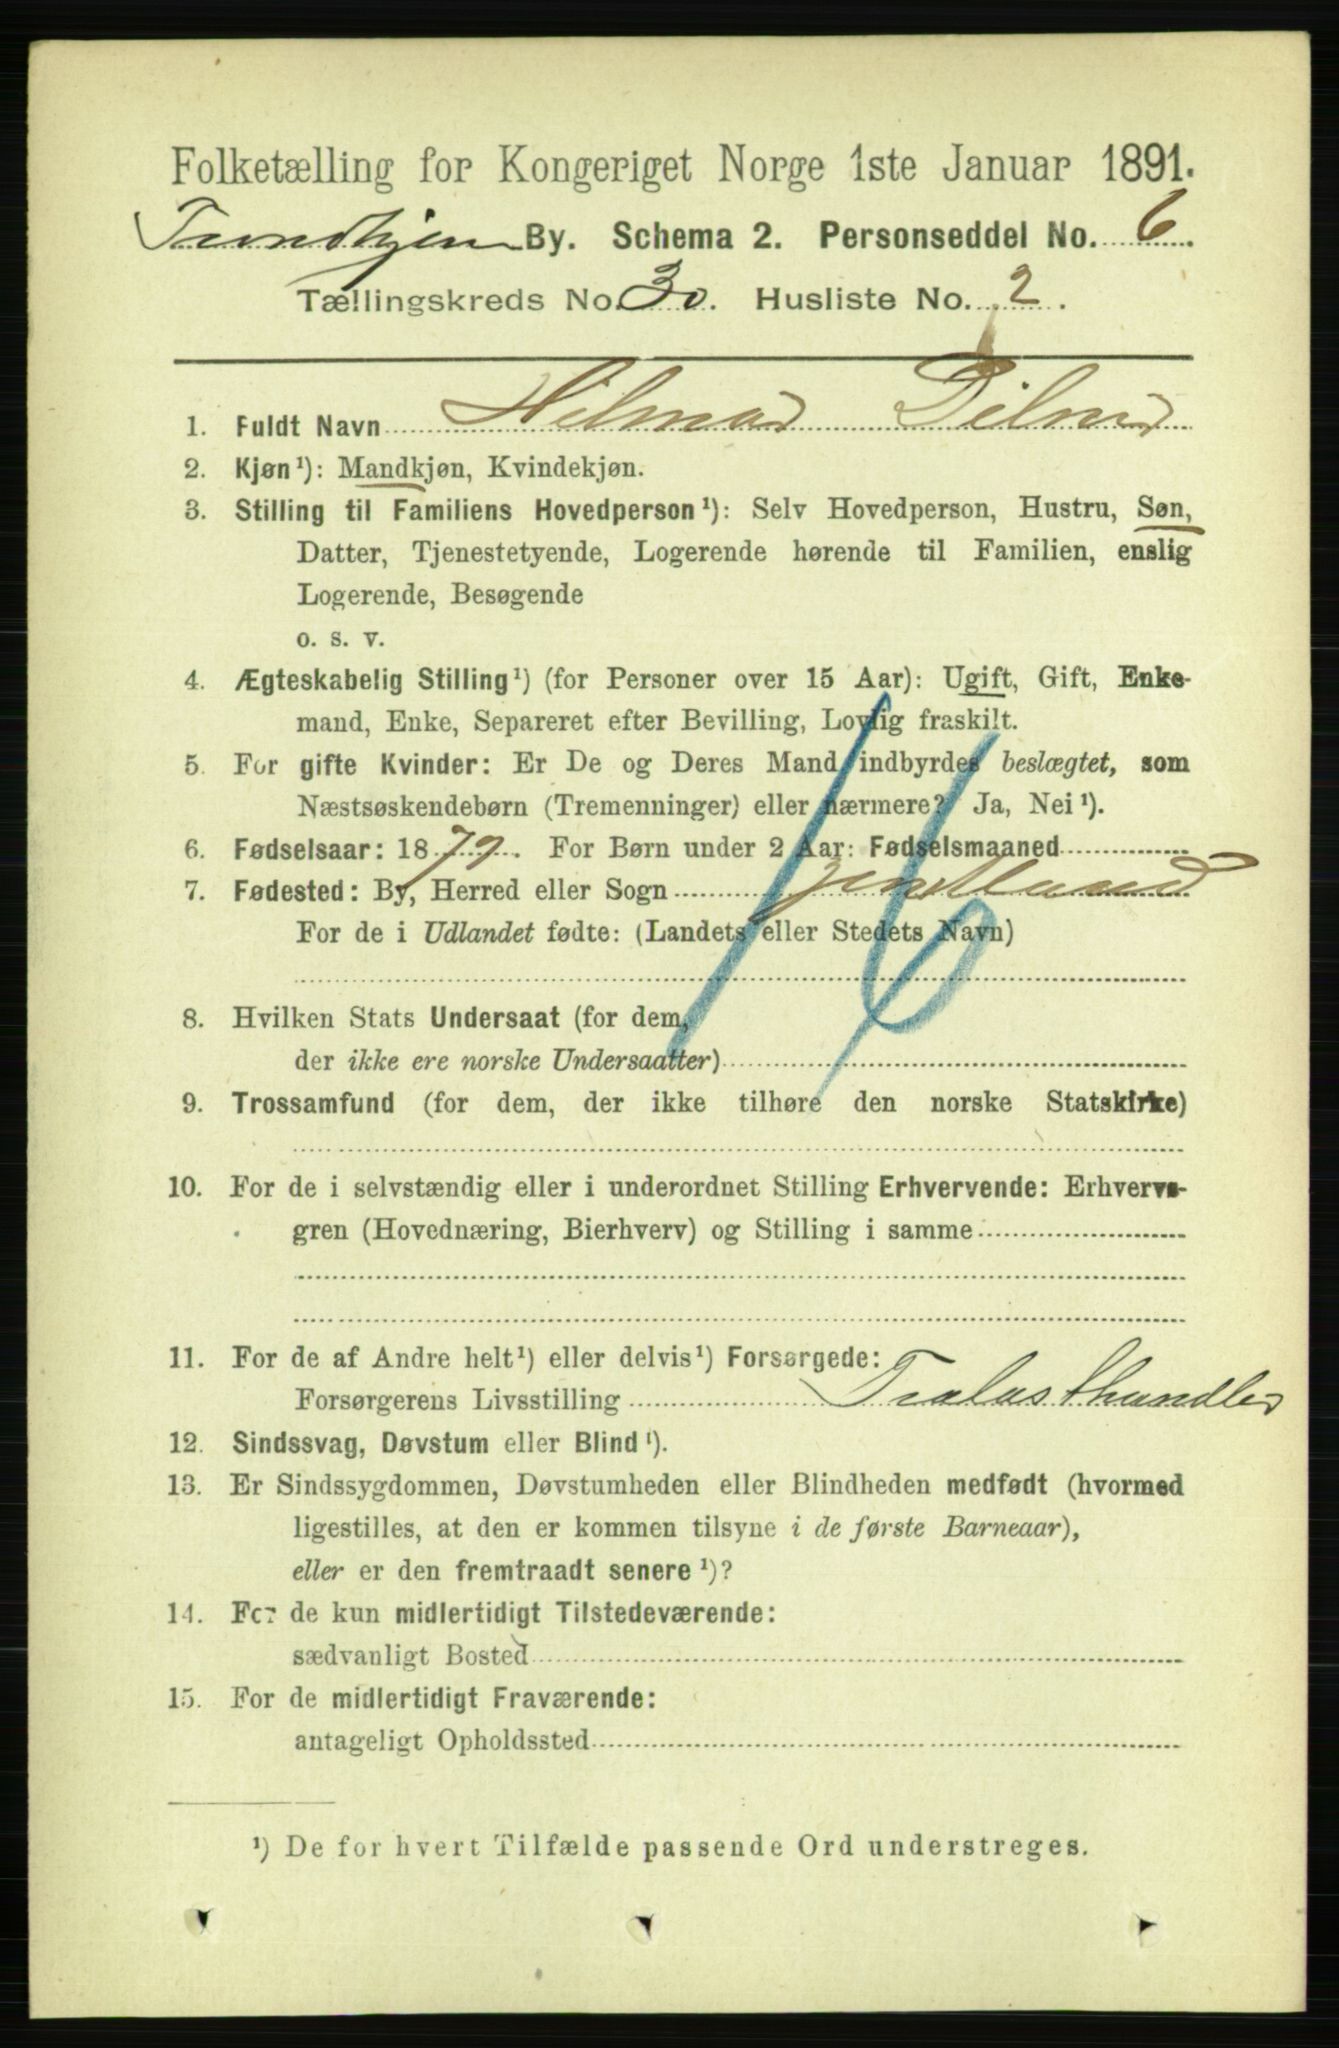 Folketælling for Kongeriget Norge 1ste Januar 1891.
Trondhjem By. Schema 2. Personseddel No. 6.
Tællingskreds No. 30. Husliste No. 2.
1. Fuldt Navn Hilmar
2. Kjøn¹): Mandkjøn, Kvindekjøn.
3. Stilling til Familiens Hovedperson¹): Selv Hovedperson, Hustru, Søn,
Datter, Tjenestetyende, Logerende hørende til Familien, enslig
Logerende, Besøgende
o. s. v.
4. Ægteskabelig Stilling¹) (for Personer over 15 Aar): Ugift, Gift, Enke-
mand, Enke, Separeret efter Bevilling, Lovlig fraskilt.
5. For gifte Kvinder: Er De og Deres Mand indbyrdes beslægtet, som
Næstsøskendebørn (Tremenninger) eller nærmere? Ja, Nei¹).
6. Fødselsaar: 1879. For Børn under 2 Aar: Fødselsmaaned
7. Fødested: By, Herred eller Sogn
For de i Udlandet fødte: (Landets eller Stedets Navn)
16
8. Hvilken Stats Undersaat (for dem,
der ikke ere norske Undersaatter)
9. Trossamfund (for dem, der ikke tilhøre den norske Statskirke)
10. For de i selvstændig eller i underordnet Stilling Erhvervende: Erhvervs-
gren (Hovednæring, Bierhverv) og Stilling i samme
11. For de af Andre helt¹) eller delvis¹) Forsørgede:
Forsørgerens Livsstilling Trælasthandler
12. Sindssvag, Døvstum eller Blind¹).
13. Er Sindssygdommen, Døvstumheden eller Blindheden medfødt (hvormed
ligestilles, at den er kommen tilsyne i de første Barneaar),
eller er den fremtraadt senere¹)?
14. For de kun midlertidigt Tilstedeværende:
sædvanligt Bosted
15. For de midlertidigt Fraværende:
antageligt Opholdssted
¹) De for hvert Tilfælde passende Ord understreges.